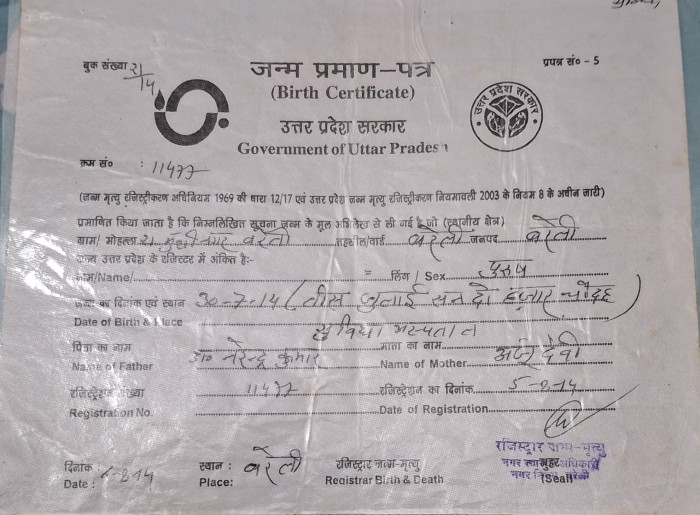 बुक संख्या 21/14
प्रपत्र सं० - 5
जन्म प्रमाण-पत्र
(Birth Certificate)
उत्तर प्रदेश सरकार
उत्तर प्रदेश सरकार
Government of Uttar Prades
क्रम सं० : 11477
(जन्म मृत्यु रजिस्ट्रीकरण अधिनियम 1969 की धारा 12/17 एवं उत्तर प्रदेश जन्म मृत्यु रजिस्ट्रीकरण नियमावली 2003 के नियम 8 के अधीन जारी)
प्रमाणित किया जाता है कि निम्नलिखित सूचना जन्म के मूल अभिलेख से ली गई है जो (स्थानीय क्षेत्र)
ग्राम/ मोहल्ला बरेली तहसील/वार्ड बरेली जनपद बरेली
राज्य उत्तर प्रदेश के रजिस्टर में अंकित है:-
नाम/Name/ = लिंग / Sex पुरुष
जन्म का दिनांक एवं स्थान 30-7-14 (तीस जुलाई सन दो हजार चौदह)
Date of Birth & Place सुविधा अस्पताल
पिता का नाम डा० नरेन्द्र कुमार माता का नाम देवी
Name of Father Name of Mother
रजिस्ट्रेशन संख्या 11477 रजिस्ट्रेशन का दिनांक 5-8-14
Registration No. Date of Registration
रजिस्ट्रार जन्म-मृत्यु
दिनांक : स्थान : बरेली रजिस्ट्रार जन्म-मृत्यु मुहर
Date : -8-14 Place: Registrar Birth & Death (Seal)